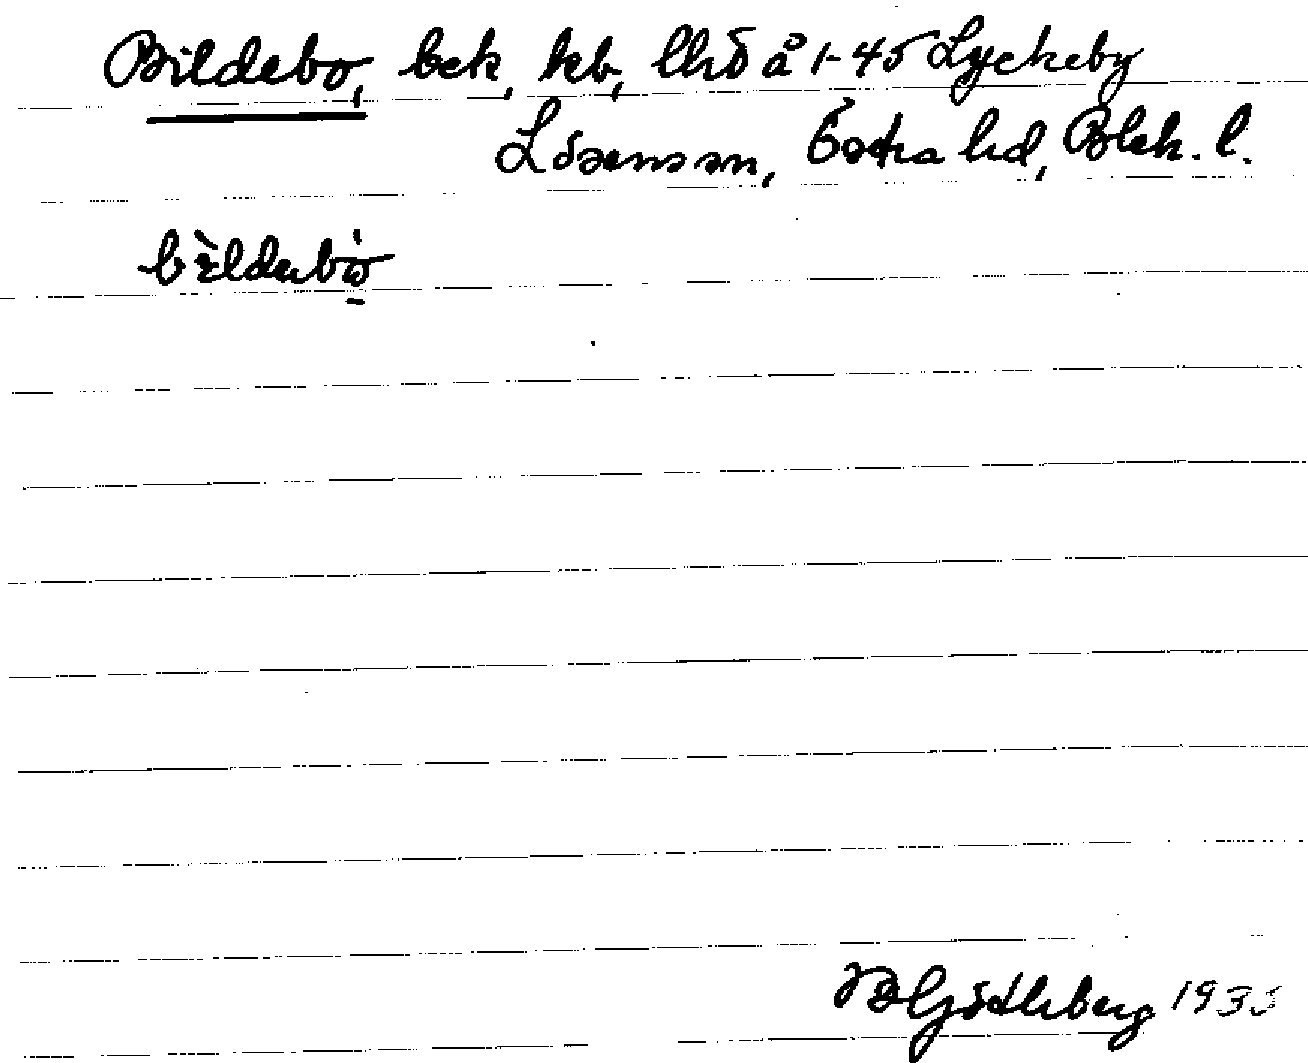 Bildebo, bek, kb, lhö å 1-45 Lyckeby
Lösens sn, Östra hd, Blek. l.
bildebo
Götlberg 1933